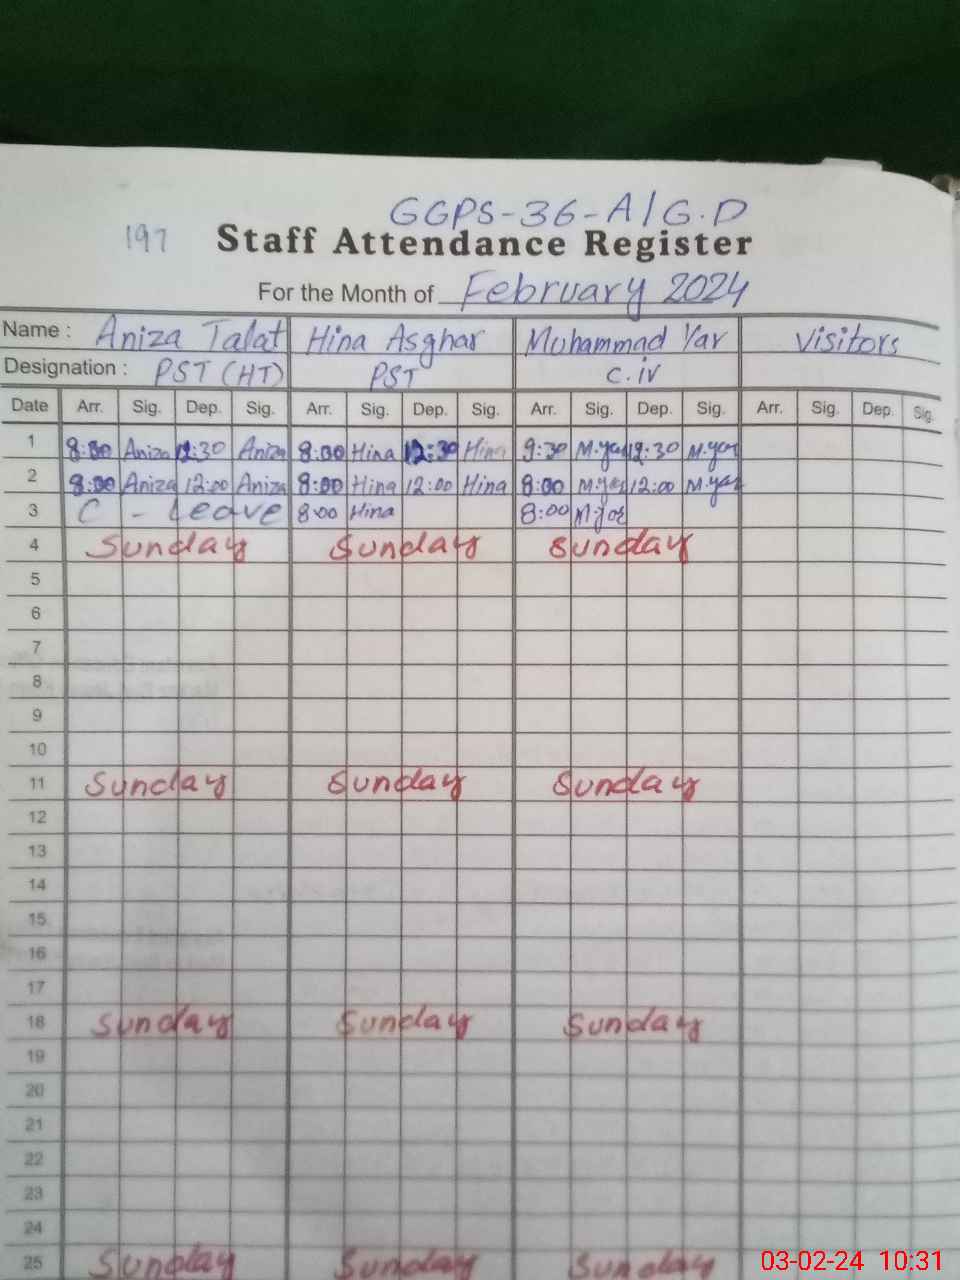 GGPS-36-A/G.D
197 Staff Attendance Register
For the Month of February 2024
Name : Aniza Talat Hina Asghar Muhammad Yar Visitors
Designation : PST (HT) PST C.iv
Date Arr. Sig. Dep. Sig. Arr. Sig. Dep. Sig. Arr. Sig. Dep. Sig. Arr. Sig. Dep. Sig.
1 8:00 Aniza 12:30 Aniza 8:00 Hina 12:30 Hina M.yar 12:30 M.yar
2 8:00 Aniza 12:00 Aniza 8:00 Hina 12:00 Hina 8:00 M.yar 12:00 M.yar
3 C - Leave 8:00 Hina 8:00
4 Sunday Sunday Sunday
5
6
7
8
9
10
11 Sunday Sunday Sunday
12
13
14
15
16
17
18 Sunday Sunday Sunday
19
20
21
22
23
24
25 Sunday Sunday Sunday
03-02-24 10:31